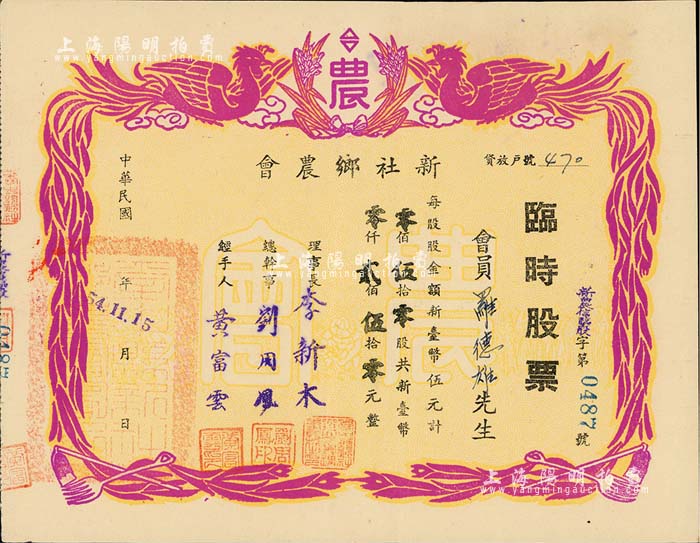 上海陽明拍賣
www.yangmingauction.com
農
新社鄉農會
貸放戶號 470
臨時股票
新農信股字第0487號
會員羅德雄先生
每股股金額新臺幣伍元計
零佰伍拾零股共新臺幣
零仟貳佰伍拾零元整
理事長李新木
總幹事劉用鳳
經手人黃富雲
中華民國 年 月 日
54.11.15
農會
上海陽明拍賣
www.yangmingauction.com